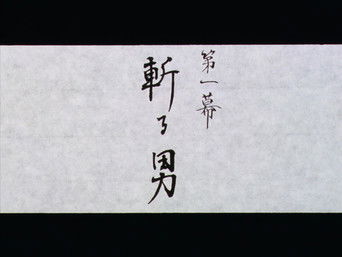 第一幕
斬る男